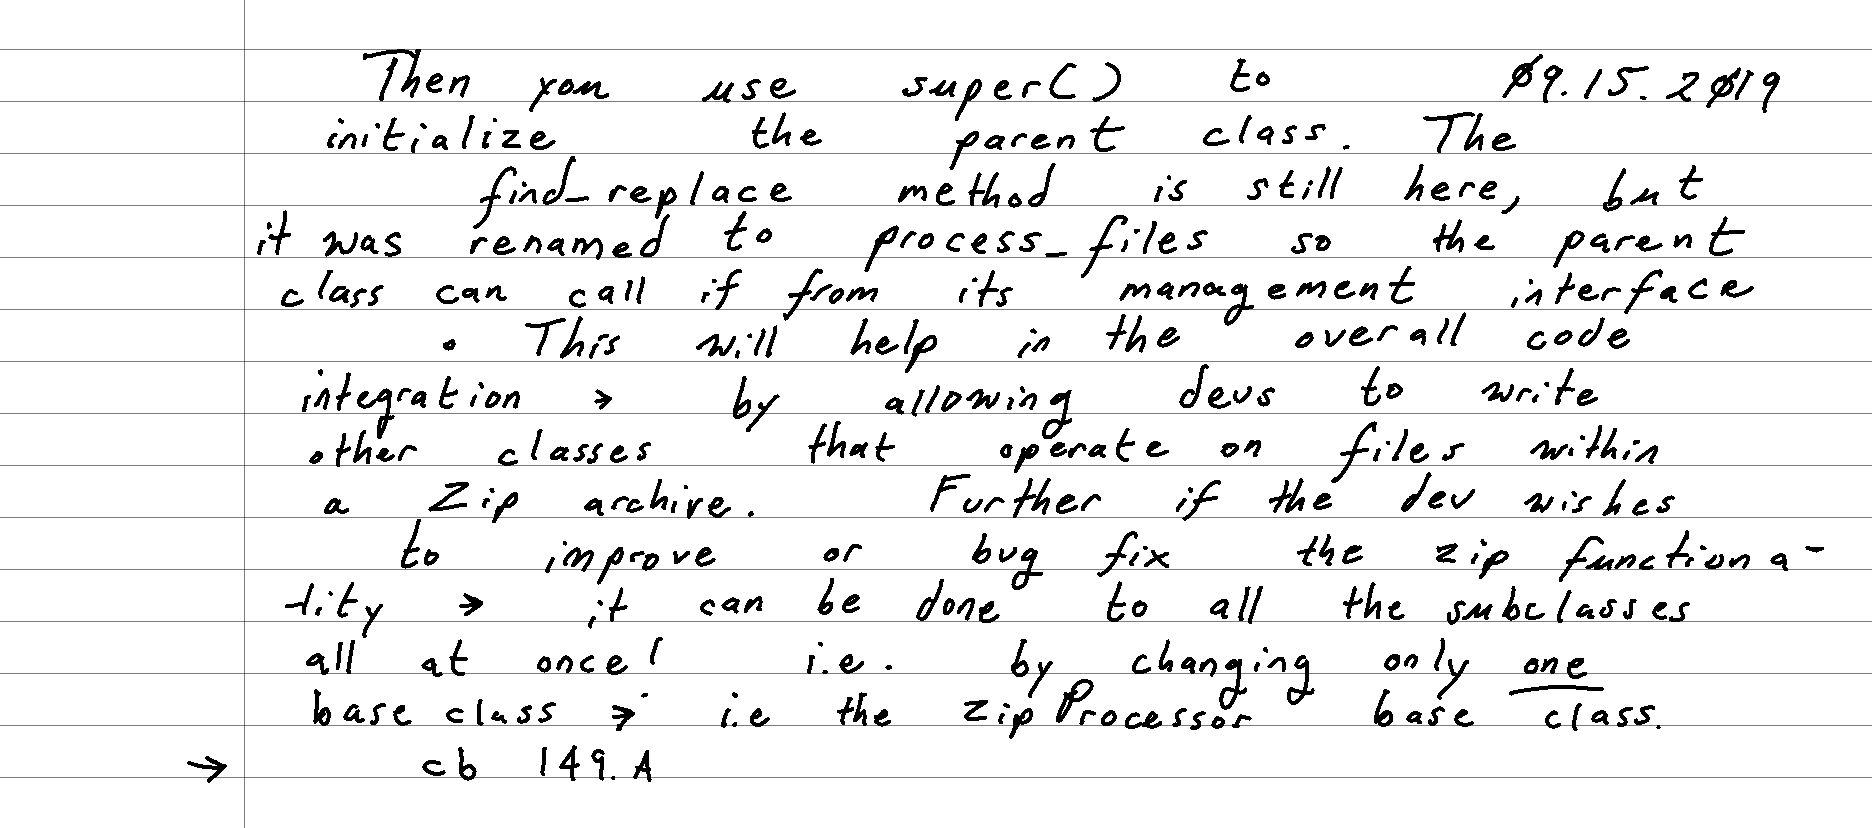 Then you use super() to 09.15.2019
initialize the parent class. The
find_replace method is still here, but
it was renamed to process_files so the parent
class can call if from its management interface
. This will help in the overall code
integration → by allowing devs to write
other classes that operate on files within
a Zip archive. Further if the dev wishes
to improve or bug fix the zip functiona-
lity → it can be done to all the subclasses
all at once! i.e. by changing only one
base class → i.e the zipProcessor base class.
→ cb 149.A